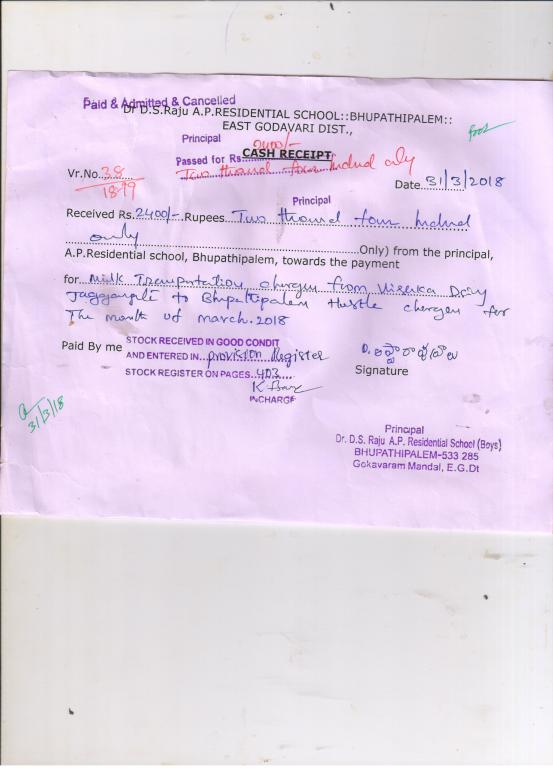 Paid & Admitted & Cancelled
Dr D.S.Raju A.P.RESIDENTIAL SCHOOL::BHUPATHIPALEM::
EAST GODAVARI DIST.,
Principal
CASH RECEIPT
Passed for Rs. 2400/-
Two thousand four hundred only
Vr.No. 38
18-99
Date 31/3/2018
Principal
Received Rs. 2400/- Rupees Two thousand four hundred
only Only) from the principal,
A.P.Residential school, Bhupathipalem, towards the payment
for milk Transportation charges from Visaka Dairy
to Bhupathipalem charges for
The month of march.2018
Paid By me
STOCK RECEIVED IN GOOD CONDIT
AND ENTERED IN provision Register
STOCK REGISTER ON PAGES. 403
INCHARGE
Signature
31/3/18
Principal
Dr. D.S. Raju A.P. Residential School (Boys)
BHUPATHIPALEM-533 285
Gokavaram Mandal, E.G.Dt